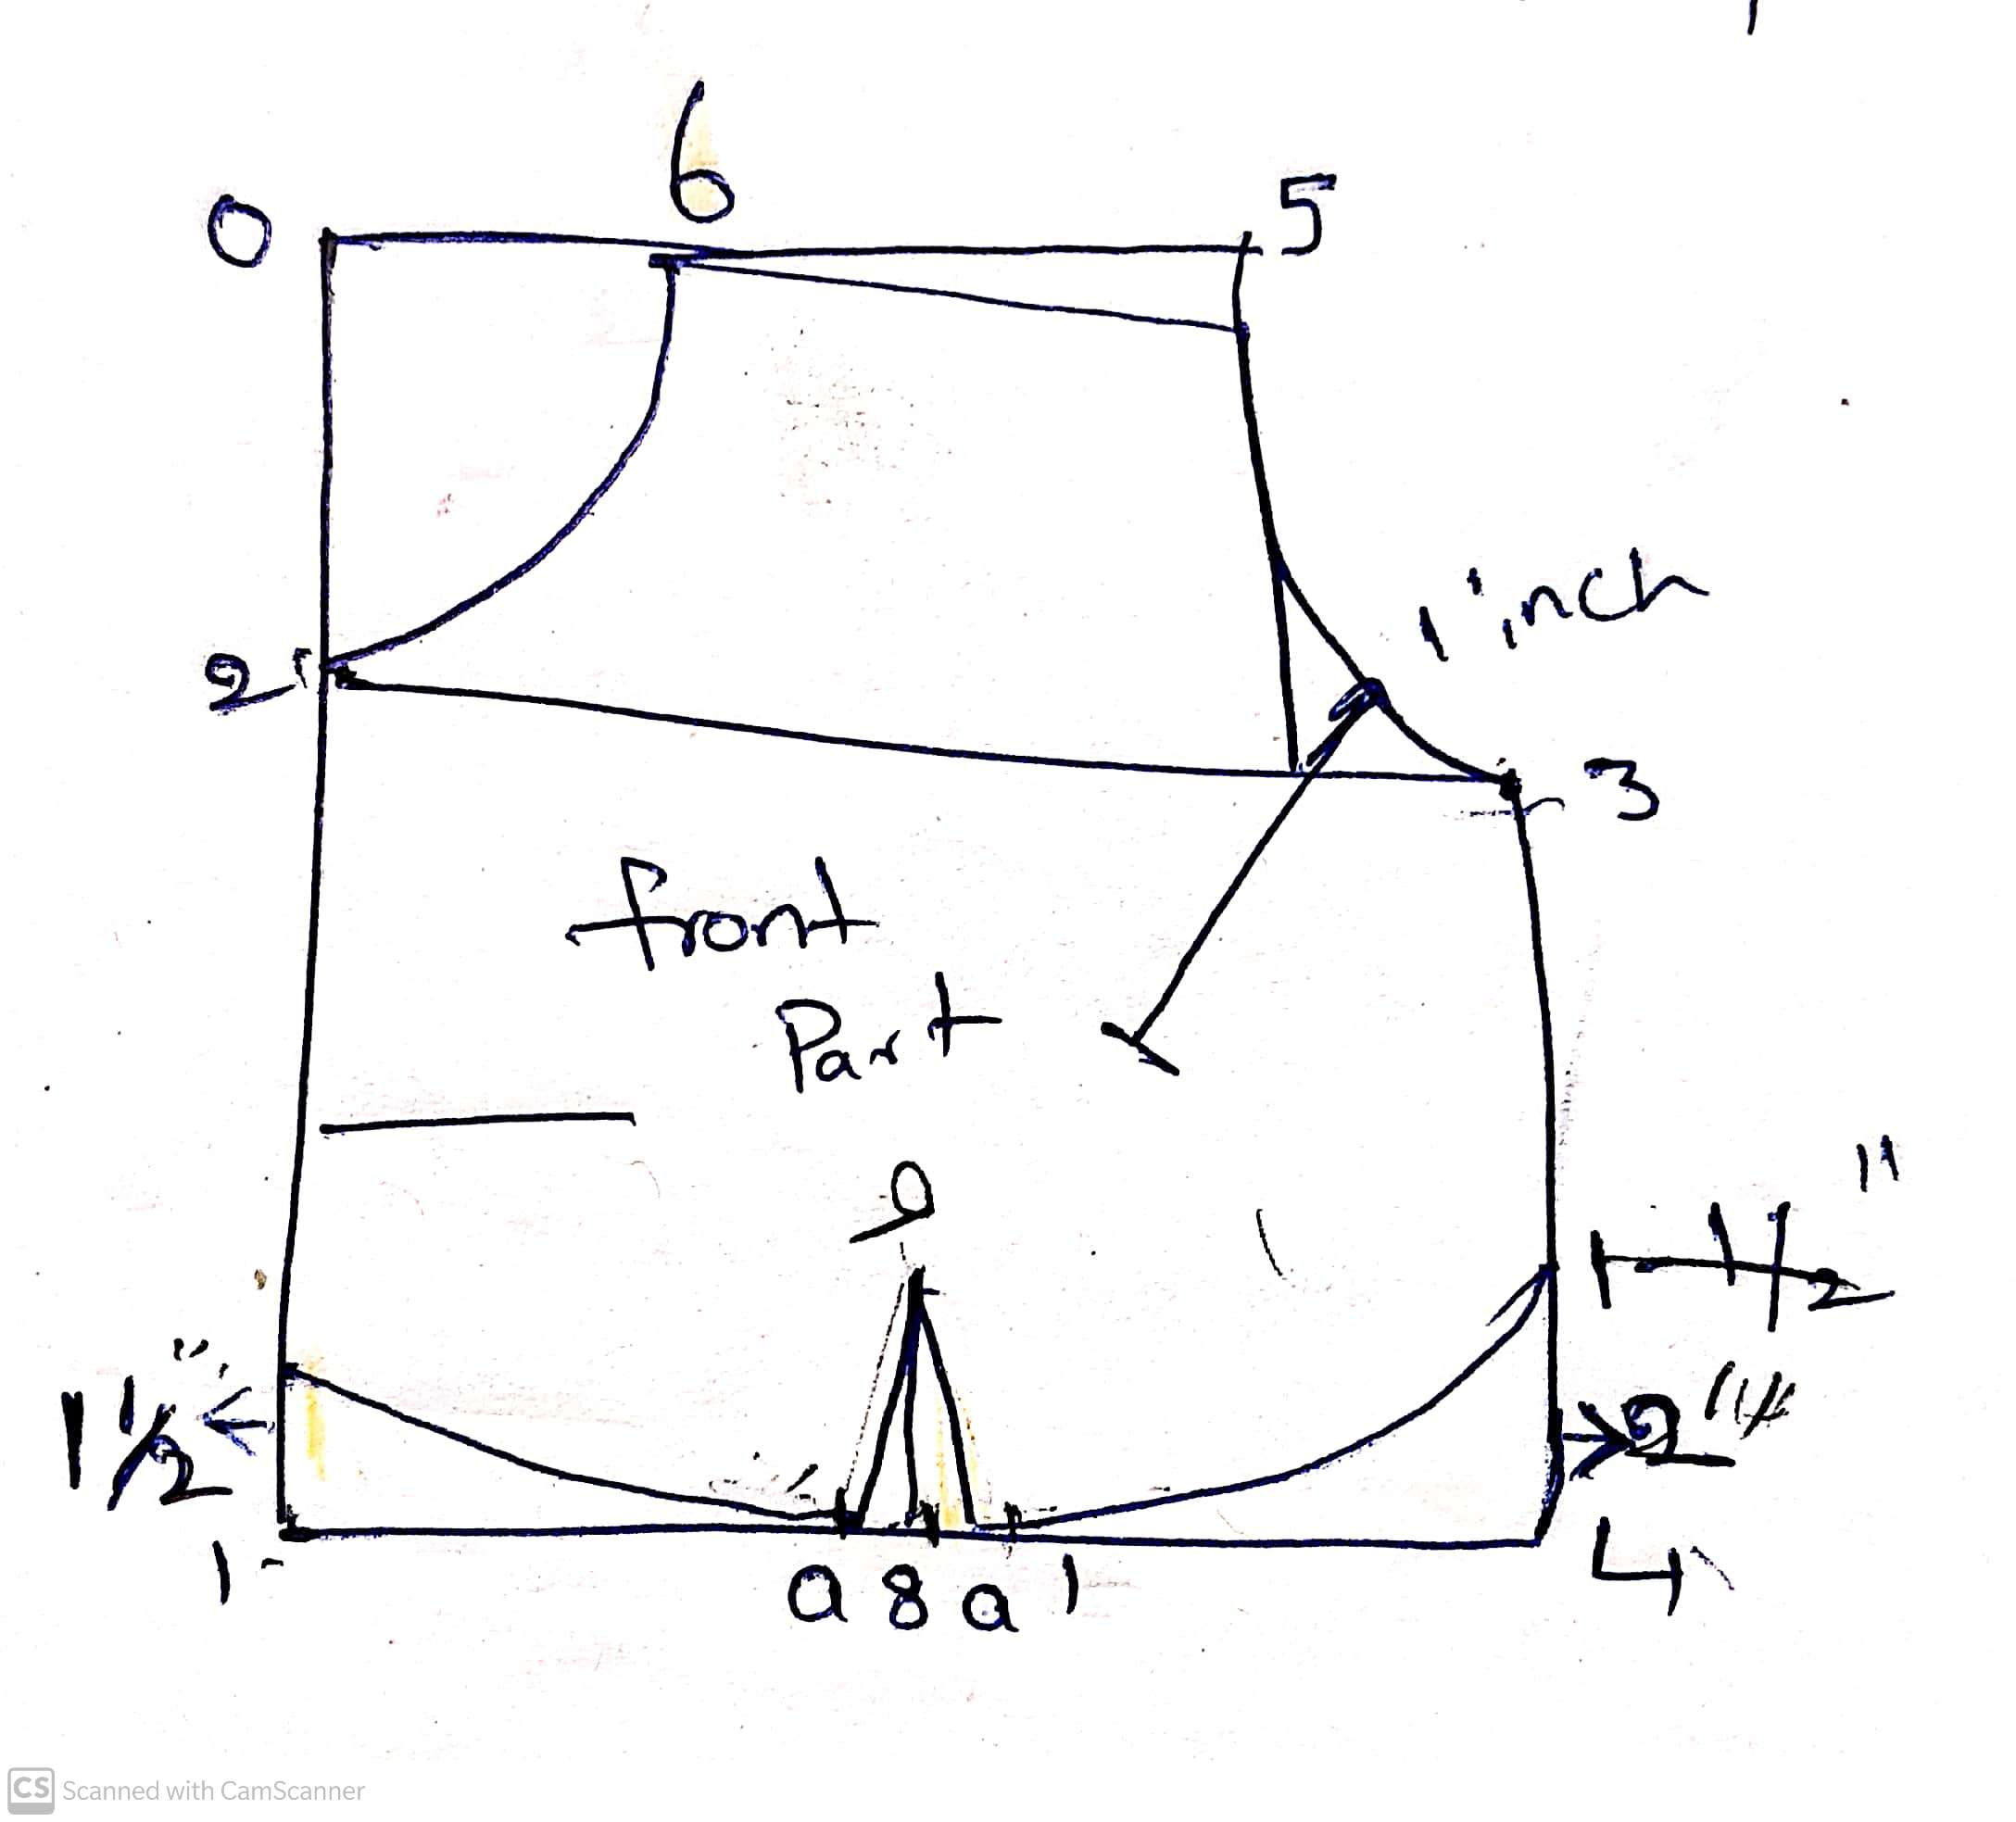 6
0
5
1 inch
2
3
front
Part
9
1 1/2"
2"
1
a 8 a 1
4
CS Scanned with CamScanner